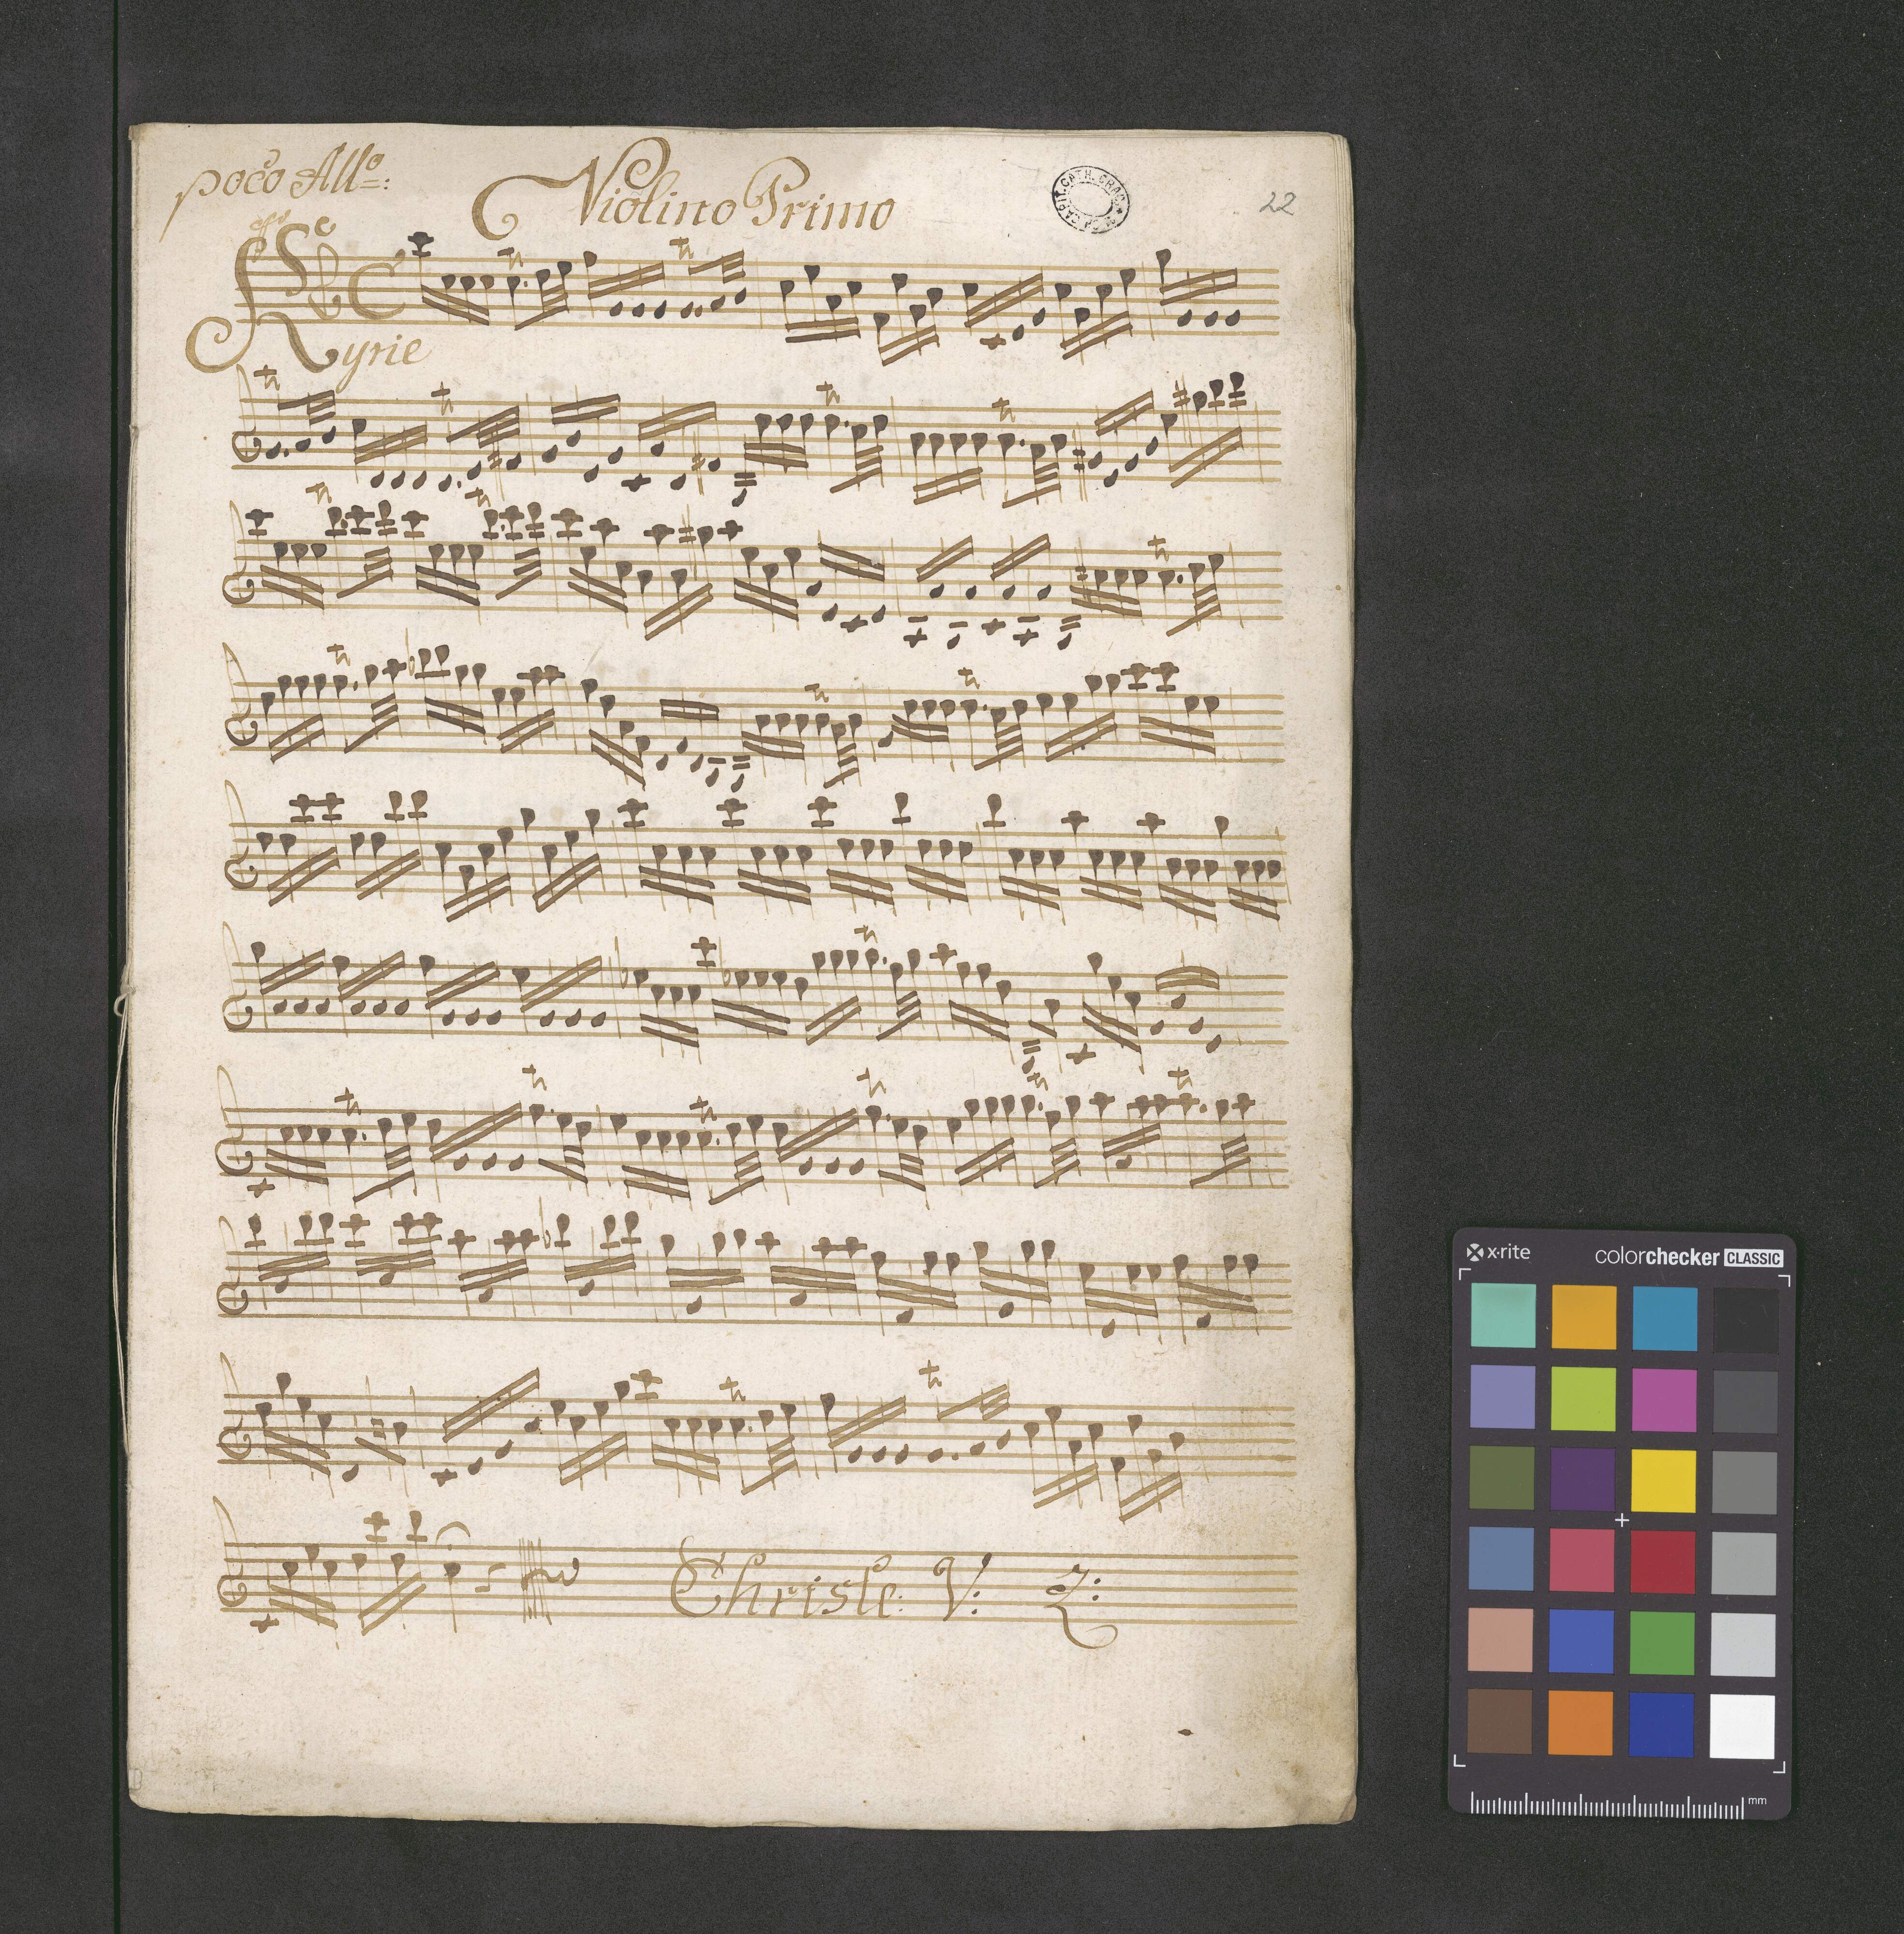 poco Allo:
Violino Primo
22
Kyrie
Christe: V: 2:
x-rite
colorchecker CLASSIC
mm